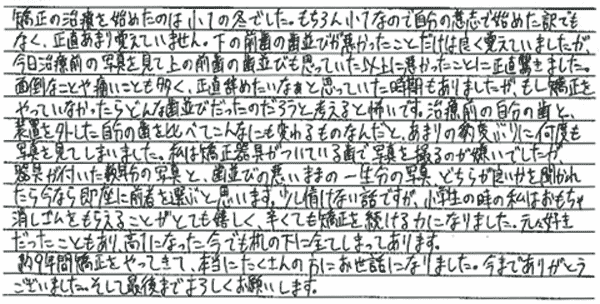 矯正の治療を始めたのは小1の冬でした。もちろん小1なので自分の意志で始めた訳でも
なく、正直あまり覚えていません。下の前歯の歯並びが悪かったことだけは良く覚えていましたが、
今日治療前の写真を見て上の前歯の歯並びも思っていた以上に悪かったことに正直驚きました。
面倒なことや痛いことも多く、正直辞めたいなぁと思っていた時期もありましたが、もし矯正を
やっていなかったらどんな歯並びだったのだろうと考えると怖いです。治療前の自分の歯と、
装置を外した自分の歯を比べてこんなにも変わるものなんだと、あまりの豹変ぶりに何度も
写真を見てしまいました。私は矯正器具がついている歯で写真を撮るのが嫌いでしたが
器具が付いた数年分の写真と、歯並びの悪いままの一生分の写真、どちらが良いかを聞かれ
たら今なら即座に前者を選ぶと思います。少し情けない話ですが、小学生の時の私はおもちゃ
消しゴムをもらえることがとても嬉しく、辛くても矯正を続ける力になりました。元々好き
だったこともあり、高1になった今でも机の下に全てしまってあります。
約9年間矯正をやってきて、本当にたくさんの方にお世話になりました。今までありがとう
ございました。そして最後までよろしくお願いします。